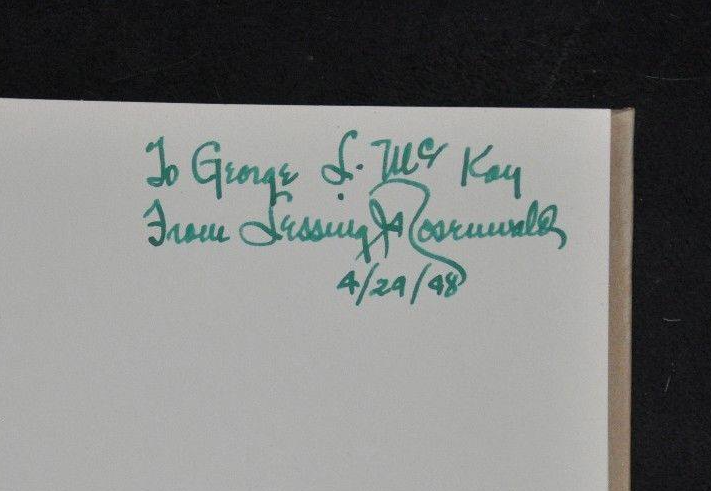 To George L. Mc Kay
From Lessing J. Rosenwald
4/29/48